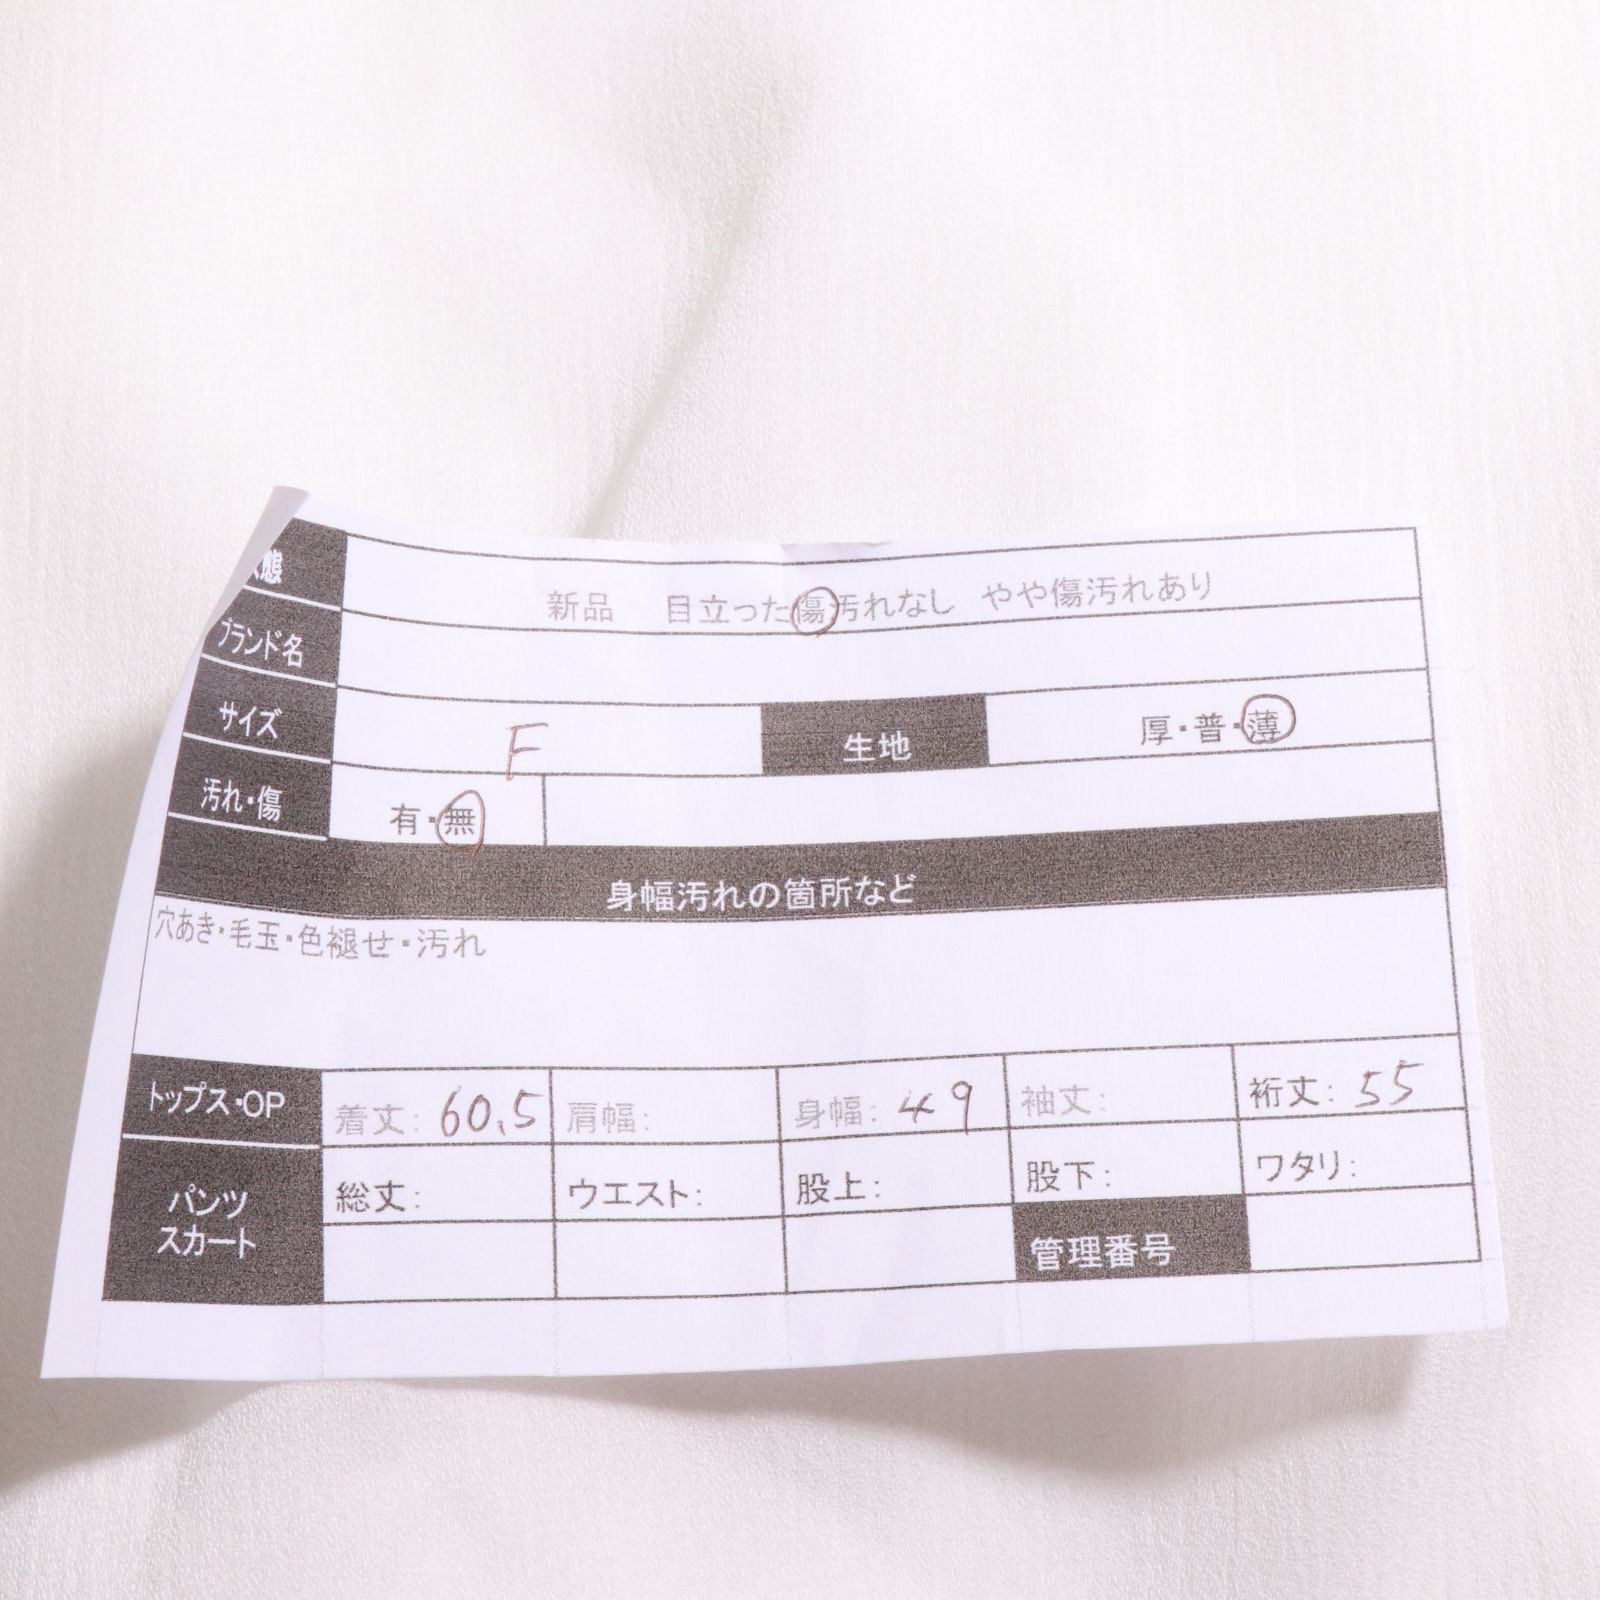 態 新品 目立った傷汚れなし やや傷汚れあり
ブランド名
サイズ F 生地 厚・普・薄
汚れ・傷 有・無
身幅汚れの箇所など
穴あき・毛玉・色褪せ・汚れ
トップス・OP 着丈: 60.5 肩幅: 身幅: 49 袖丈: 裄丈: 55
パンツ 総丈: ウエスト: 股上: 股下: ワタリ:
スカート 管理番号